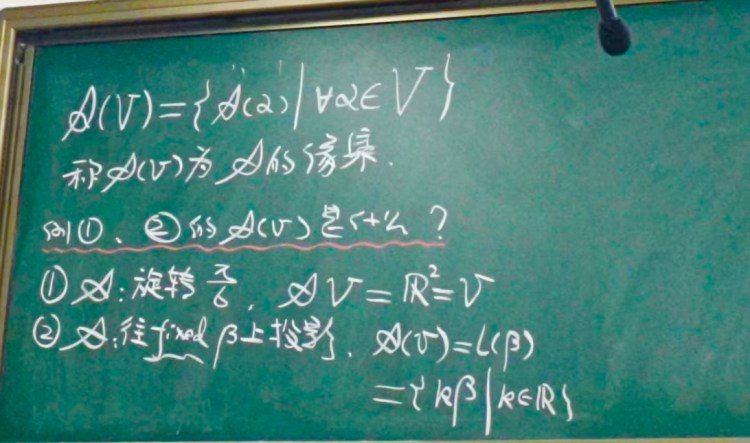 𝒜(V)={𝒜(α)|∀α∈V}
称𝒜(V)为𝒜的像集.
例①、②的𝒜(V)是什么?
①𝒜:旋转π/6, 𝒜V=ℝ²=V
②𝒜:往fixed β上投影, 𝒜(V)=L(β)
={kβ|k∈ℝ}